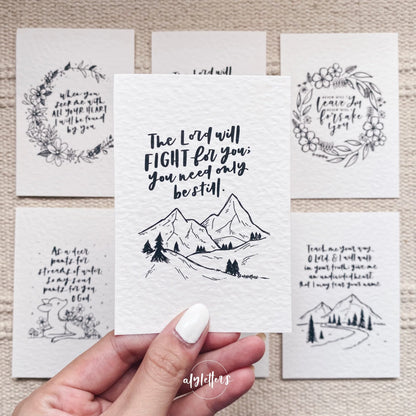 When you
seek me with
ALL YOUR HEART
I will be found
by you
The Lord will
NEVER WILL I
Leave you
NEVER WILL I
forsake
you
The Lord will
FIGHT for you;
you need only
be still.
As a deer
pants for
streams of water,
so my soul
pants for you,
O God.
Teach me your way,
O Lord & I will walk
in your truth; give me
an undivided heart,
that I may fear your name.
alyletters